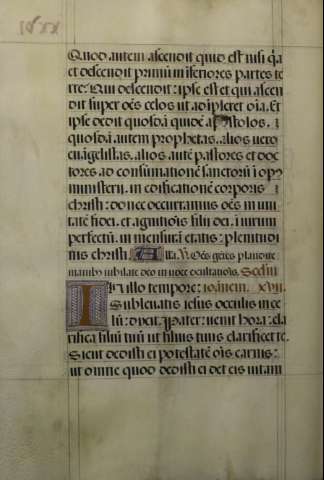 Quod autem ascendit quid est nisi q̃a
et descendit primũ in inferiores partes te
rre: Qui descendit: ipse est et qui ascen
dit super oẽs celos ut adipleret oĩa. Et
ipse dedit quosdã quidẽ apostolos. :
quosdã autem prophetas. alios uero
euãgelistas. alios autẽ pastores et doc
tores ad consumationẽ sanctorũ ĩ op9
ministerii. in edificationẽ corporis
christi: donec occurramus oẽs in uni
tatẽ fidei. et agnitiõis filii dei. ĩ uirum
perfectũ. in mensurã etatis: plenitudi
nis christi. Alla. ℣. Oẽs gẽtes plaudite
manib9 iubilate deo in uoce exultatiõis.
In illo tempore: ioãnem. XVII.
Subleuatis iesus occulis in ce
lũ: dixit. pater: uenit hora: cla
rifica filiũ tuũ ut filius tuus clarificet te.
Sicut dedisti ei potestatẽ oĩs carnis:
ut omne quod dedisti ei det eis uitam